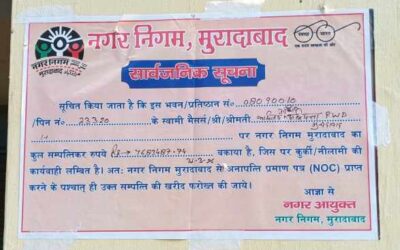 नगर निगम
मुरादाबाद
नगर निगम, मुरादाबाद
स्वच्छ भारत
एक कदम स्वच्छता की ओर
सार्वजनिक सूचना
सूचित किया जाता है कि इस भवन/प्रतिष्ठान सं० 08090010
/पिन नं० 23320 के स्वामी मैसर्स/श्री/श्रीमती PWD
पर नगर निगम मुरादाबाद का
कुल सम्पत्तिकर रुपये Rs 7687487-74 बकाया है, जिस पर कुर्की/नीलामी की
कार्यवाही लम्बित है। अतः नगर निगम मुरादाबाद से अनापत्ति प्रमाण पत्र (NOC) प्राप्त
करने के पश्चात् ही उक्त सम्पत्ति की खरीद फरोख्त की जाये।
आज्ञा से
नगर आयुक्त
नगर निगम, मुरादाबाद